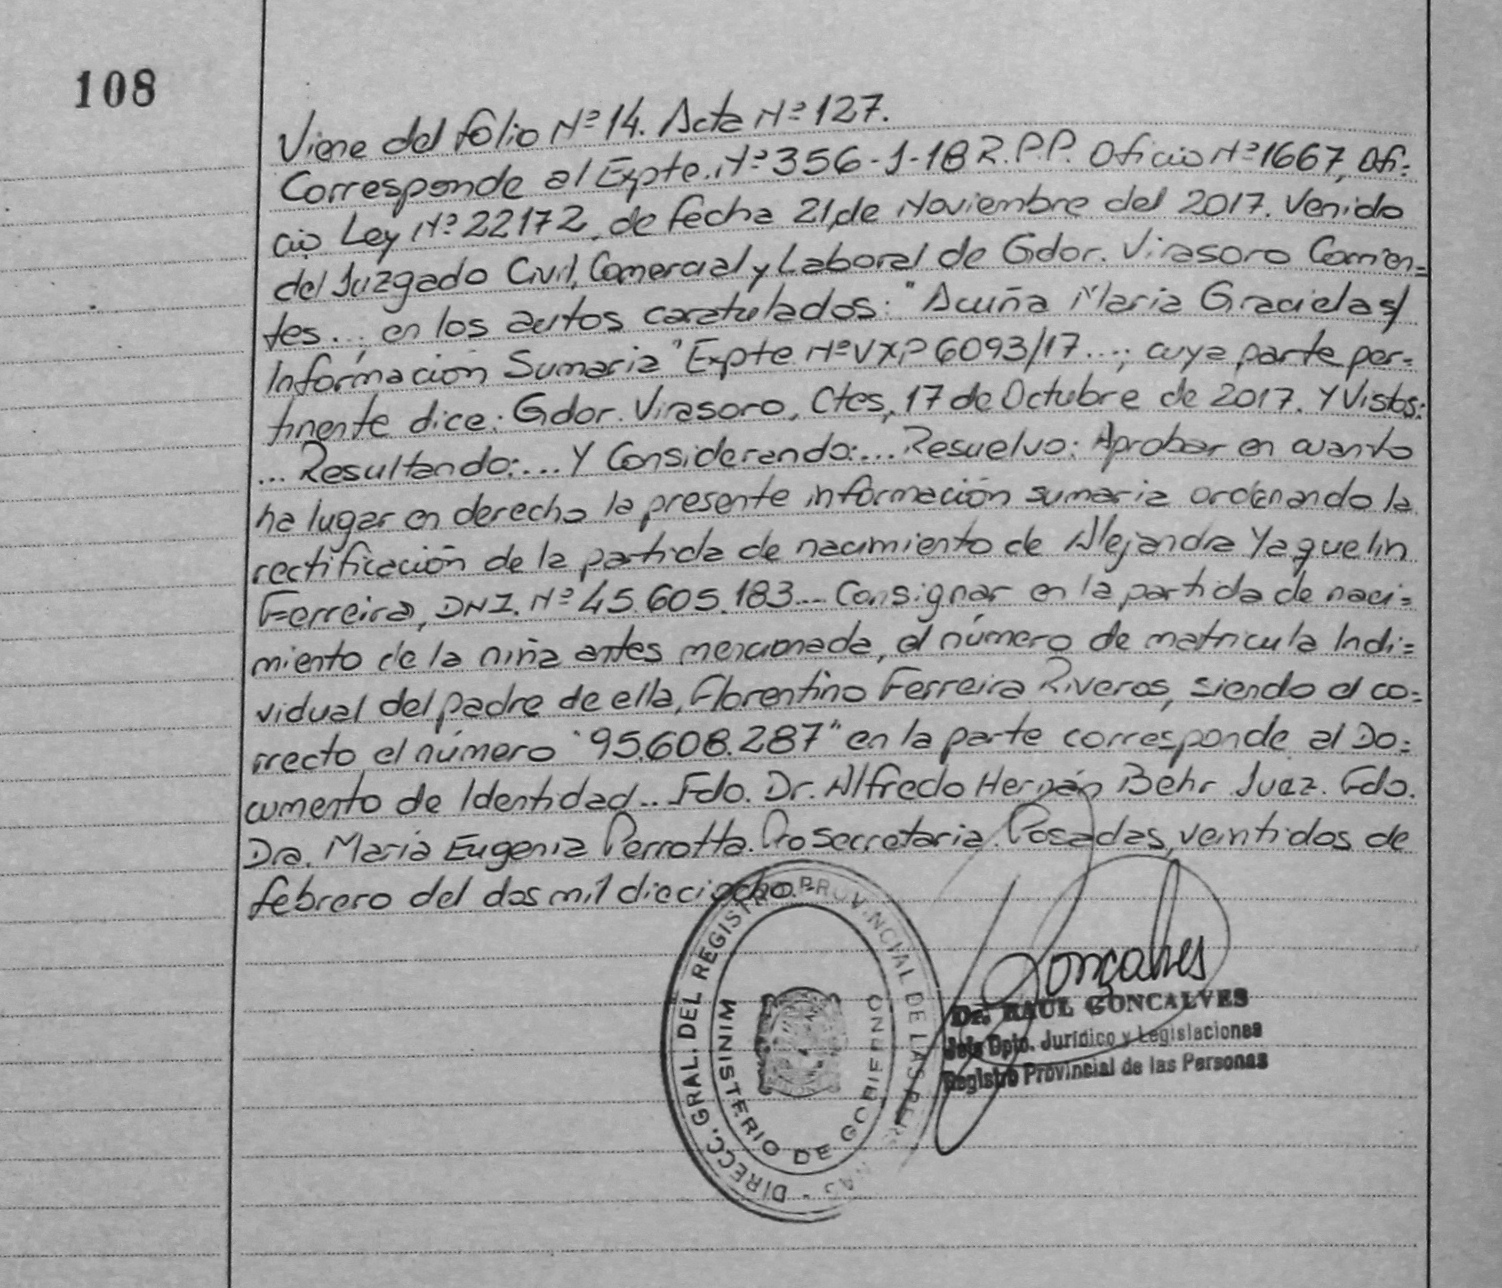 108
Viene del folio Nº 14. Acta Nº 127.
Corresponde al Expte. Nº 356-J-18 R.P.P. Oficio Nº 1667, Ofi=
cio Ley Nº 22172, de fecha 21, de Noviembre del 2017. Venido
del Juzgado Civil, Comercial y Laboral de Gdor. Virasoro Corrien=
tes...; en los autos caratulados: "Acuña Maria Graciela s/
Información Sumaria" Expte Nº VXP 6093/17...; cuya parte per=
tinente dice: Gdor. Virasoro, Ctes, 17 de Octubre de 2017. Y Vistos:
... Resultando:... Y Considerando:... Resuelvo: Aprobar en cuanto
ha lugar en derecho la presente información sumaria ordenando la
rectificación de la partida de nacimiento de Alejandra Yaquelin
Ferreira, DNI. Nº 45.605.183... Consignar en la partida de naci=
miento de la niña antes mencionada, el número de matricula Indi=
vidual del padre de ella, Florentino Ferreira Riveros, siendo el co=
rrecto el número "95.608.287" en la parte corresponde al Do=
cumento de Identidad... Fdo. Dr. Alfredo Hernán Behr Juez. Fdo.
Dra. Maria Eugenia Perrotta. Prosecretaria. Posadas, veintidos de
febrero del dos mil dieciocho.-
DIRECC. GRAL. DEL REGISTRO PROVINCIAL DE LAS PERSONAS
MINISTERIO DE GOBIERNO
Gonçalves
Dr. RAUL GONCALVES
Jefe Dpto. Jurídico y Legislaciones
Registro Provincial de las Personas